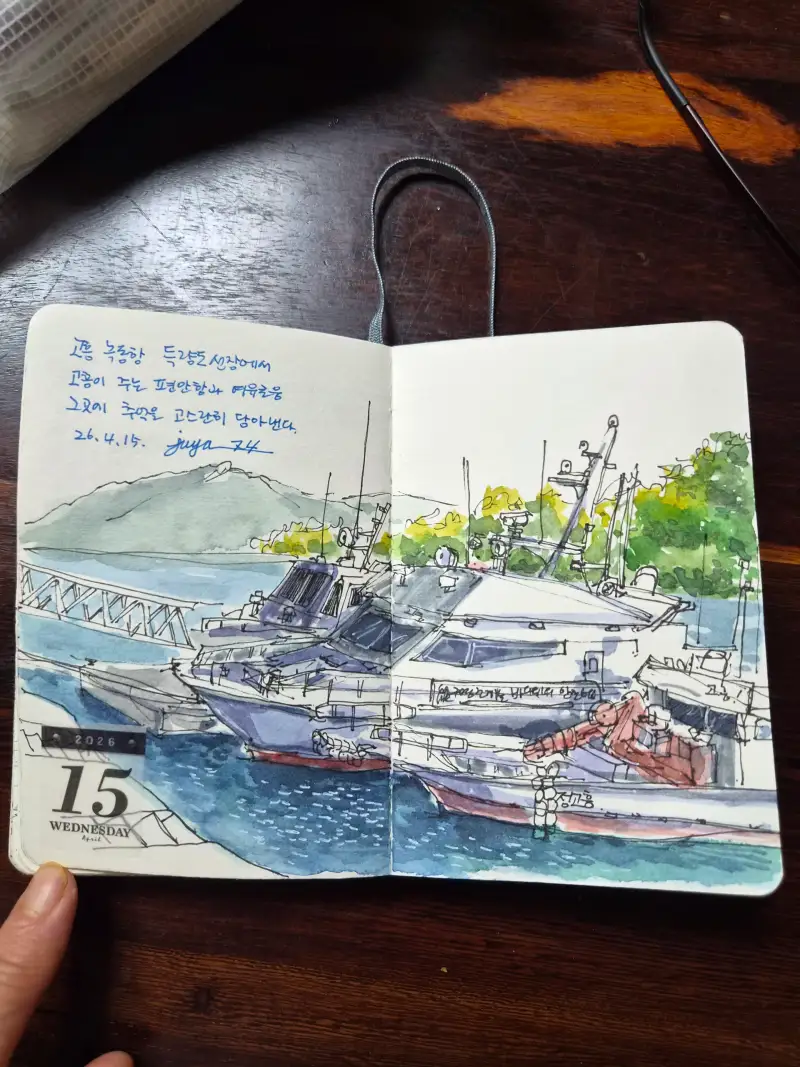 고흥 녹동항 득량도선장에서
고흥이 주는 편안함과 여유로움
그곳에 추억을 고스란히 담아낸다.
26.4.15. juya
2026
15
WEDNESDAY
April